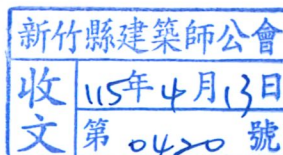 新竹縣建築師公會
收文
115年4月13日
第 0420 號